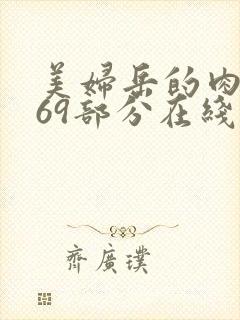 美婦岳的肉
69部分在綫
齊廣璞